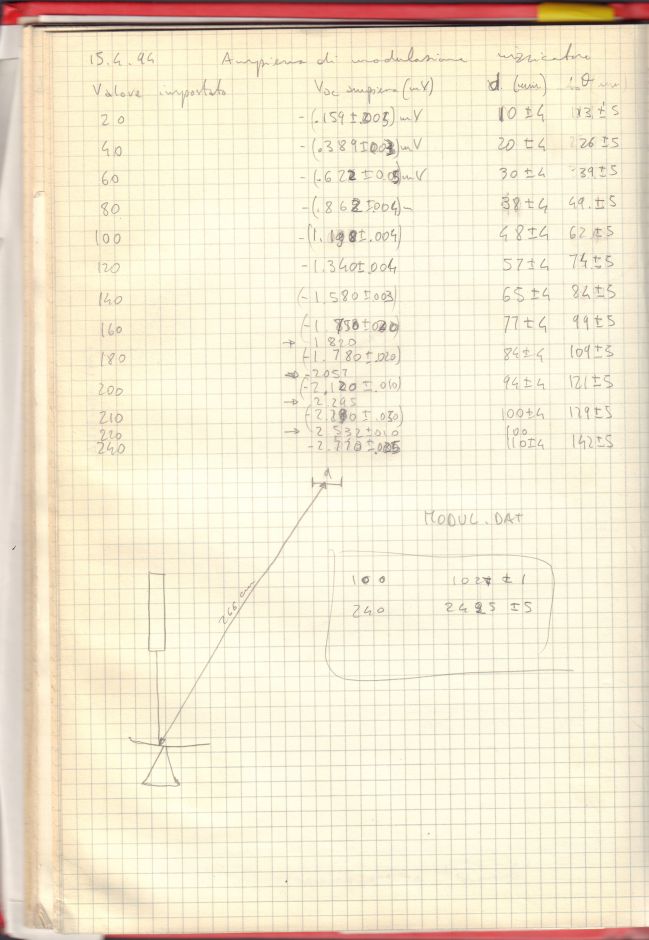 15.4.94 Ampiezza di modulazione
Valore impostato Vdc ampiezza (mV) d (mm) ϑ
20 -(.159±.003)mV 10±4 ±5
40 -(.389±.003)mV 20±4 26±5
60 -(.622±.005)mV 30±4 39±5
80 -(.862±.004)- 38±4 49.±5
100 -(1.198±.004) 48±4 62±5
120 -1.340±.004 57±4 74±5
140 (-1.580±003) 65±4 84±5
160 77±4 99±5
→ -1.820
180 (-1.780±.020) 84±4 109±5
→ -2057
200 (-2.120±.010) 94±4 121±5
→ -2.295
210 100±4 129±5
220 → -2.532±010
240 -2.770±.005 110±4 142±5
d
MODUL.DAT
266 cm
100 1027 ±1
240 2425 ±5